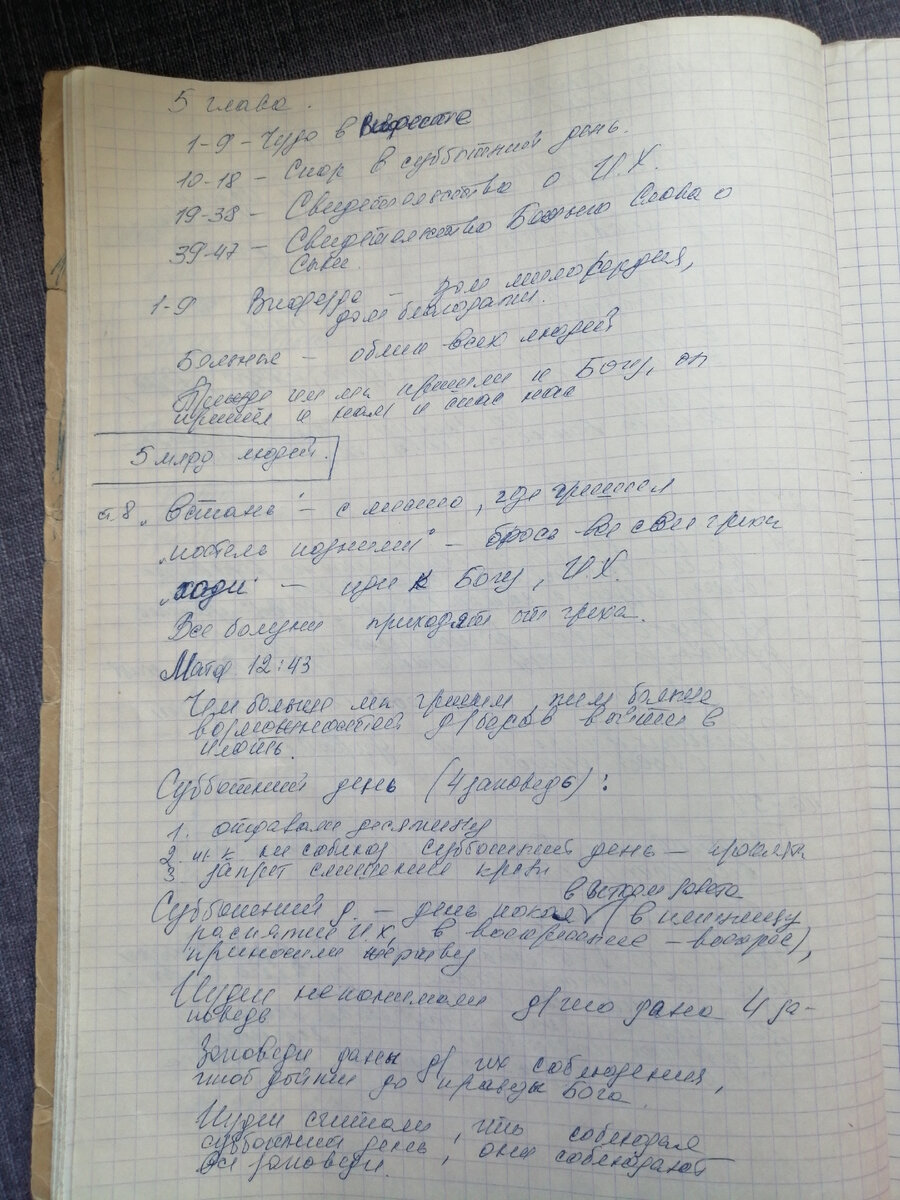 5 глава.
1-9 - Чудо в
10-18 - Спор в субботний день.
19-38 - Свидетельство о И.Х.
39-47 - Свидетельство Божьего Слова о
Сыне.
1-9 Вифезда - дом милосердия,
дом благодати.
Больные - облик всех людей
Прежде чем мы пришли к Богу, он
пришел к нам и спас нас
5 млрд людей.
ст 8 „Встань" - с места, где грешил
„постель подними" - брось все свои грехи
„ходи" - иди к Богу, И.Х.
Все болезни приходят от греха.
Матф 12:43
Чем больше мы грешим тем больше
возможностей д/бесов войти в
плоть.
Субботний день (4 заповедь):
1. отдавали десятину
2. кто не соблюд субботний день - проклят
3. запрет смешения крови
в Ветхом завете
Субботний д. - день покоя (в пятницу
распятие И.Х, в воскресение - воскрес),
приносили жертву
Иудеи не понимали д/чего дана 4 за-
поведь
Заповеди даны д/ их соблюдения,
чтоб дойти до правды Бога.
Иудеи считали, что соблюдая
субботний день, они соблюдают
все заповеди.